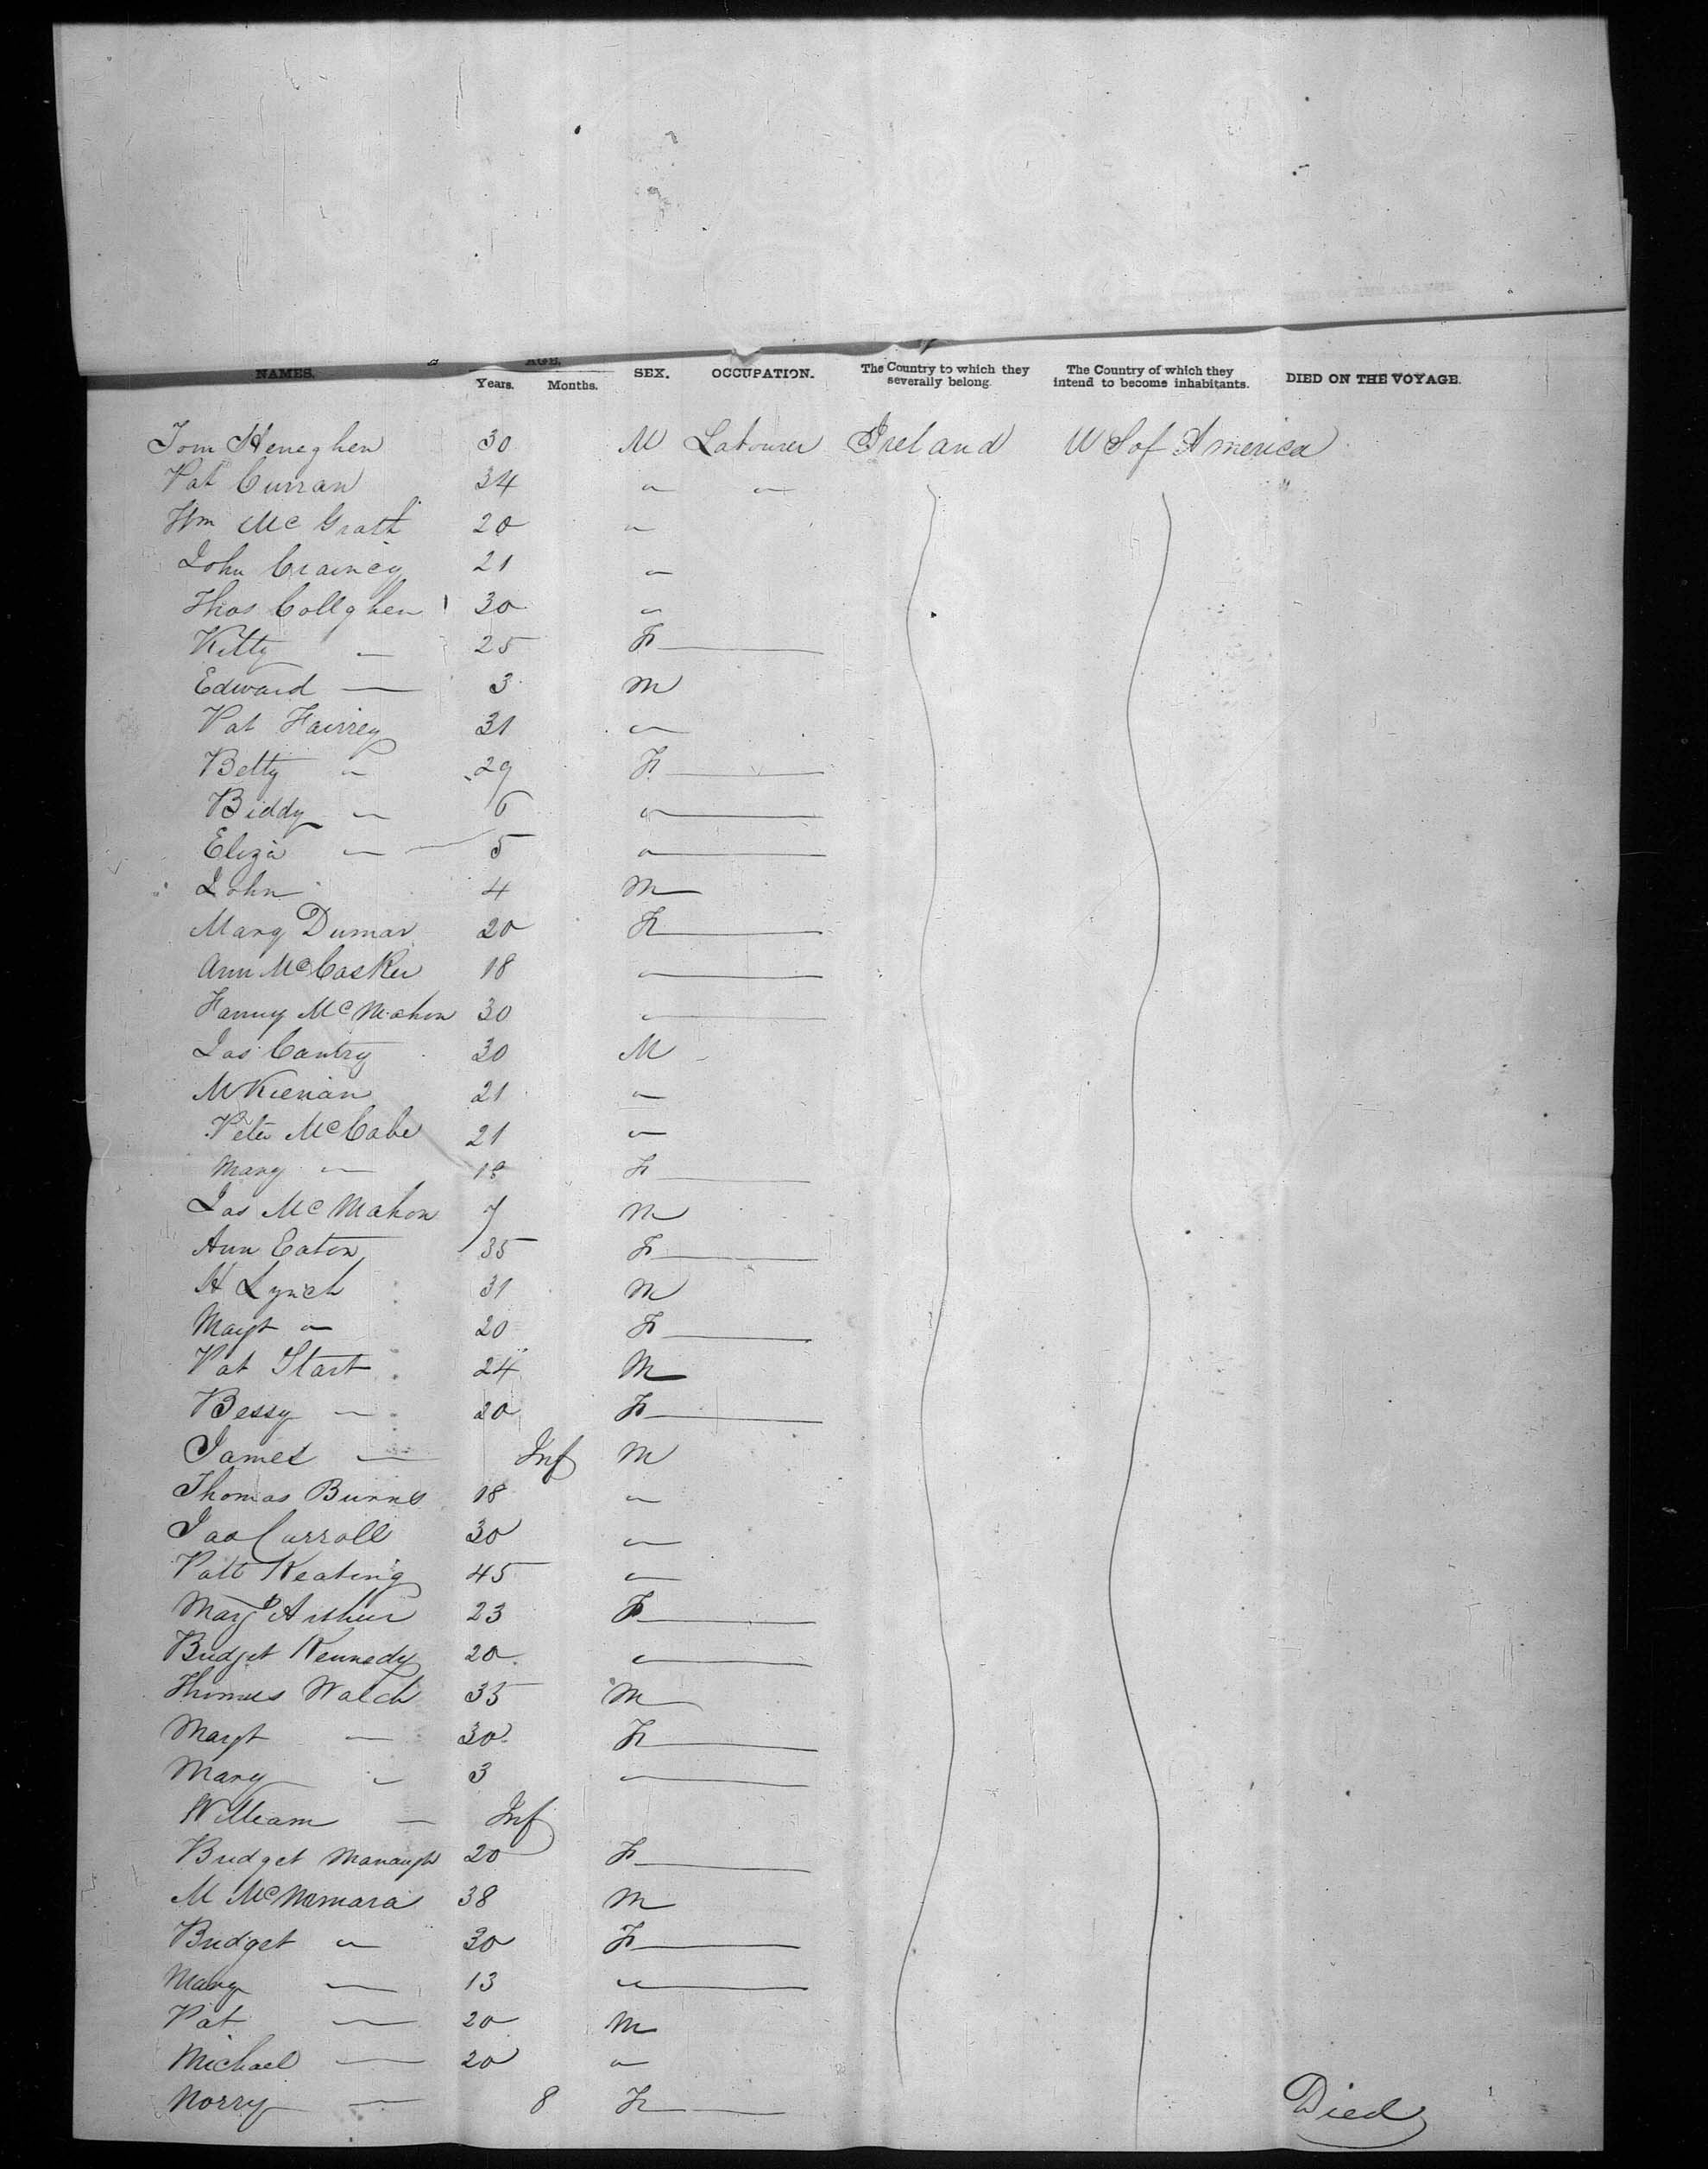 AGE.
NAMES. Years. Months. SEX. OCCUPATION. The Country to which they severally belong. The Country of which they intend to become inhabitants. DIED ON THE VOYAGE.
Tom Heneghen 30 M Labourer Ireland U S of America
Pat Curran 34 " "
Wm McGrath 20 "
John Crainey 21 "
Thos Collghen 30 "
Kitty — 25 F —
Edward — 3 M
Pat Fairrey 31 "
Betty " 29 F —
Biddy " 6 " —
Eliza " 5 " —
John 4 M
Mary Dumar 20 F —
Ann McCasker 18 —
Fanny McMahon 30 " —
Jas Cantry 30 M
M Kiernan 21 "
Peter McCabe 21 "
Mary " 18 F —
Jas McMahon 7 M
Ann Eaton 35 F —
H Lynch 31 M
Margt " 20 F —
Pat Start 24 M
Bessy — 20 F —
James — Inf M
Thomas Burns 18 "
Jas Carroll 30 "
Patt Keating 45 "
Margt Arthur 23 F —
Bridget Kennedy 20 " —
Thomas Walch 35 M
Margt — 30 F —
Mary " 3 " —
William — Inf
Bridget 20 F —
M McNamara 38 M
Bridget " 30 F —
Mary — 13 " —
Pat — 20 M
Michael — 20 "
Norry — 8 F — Died